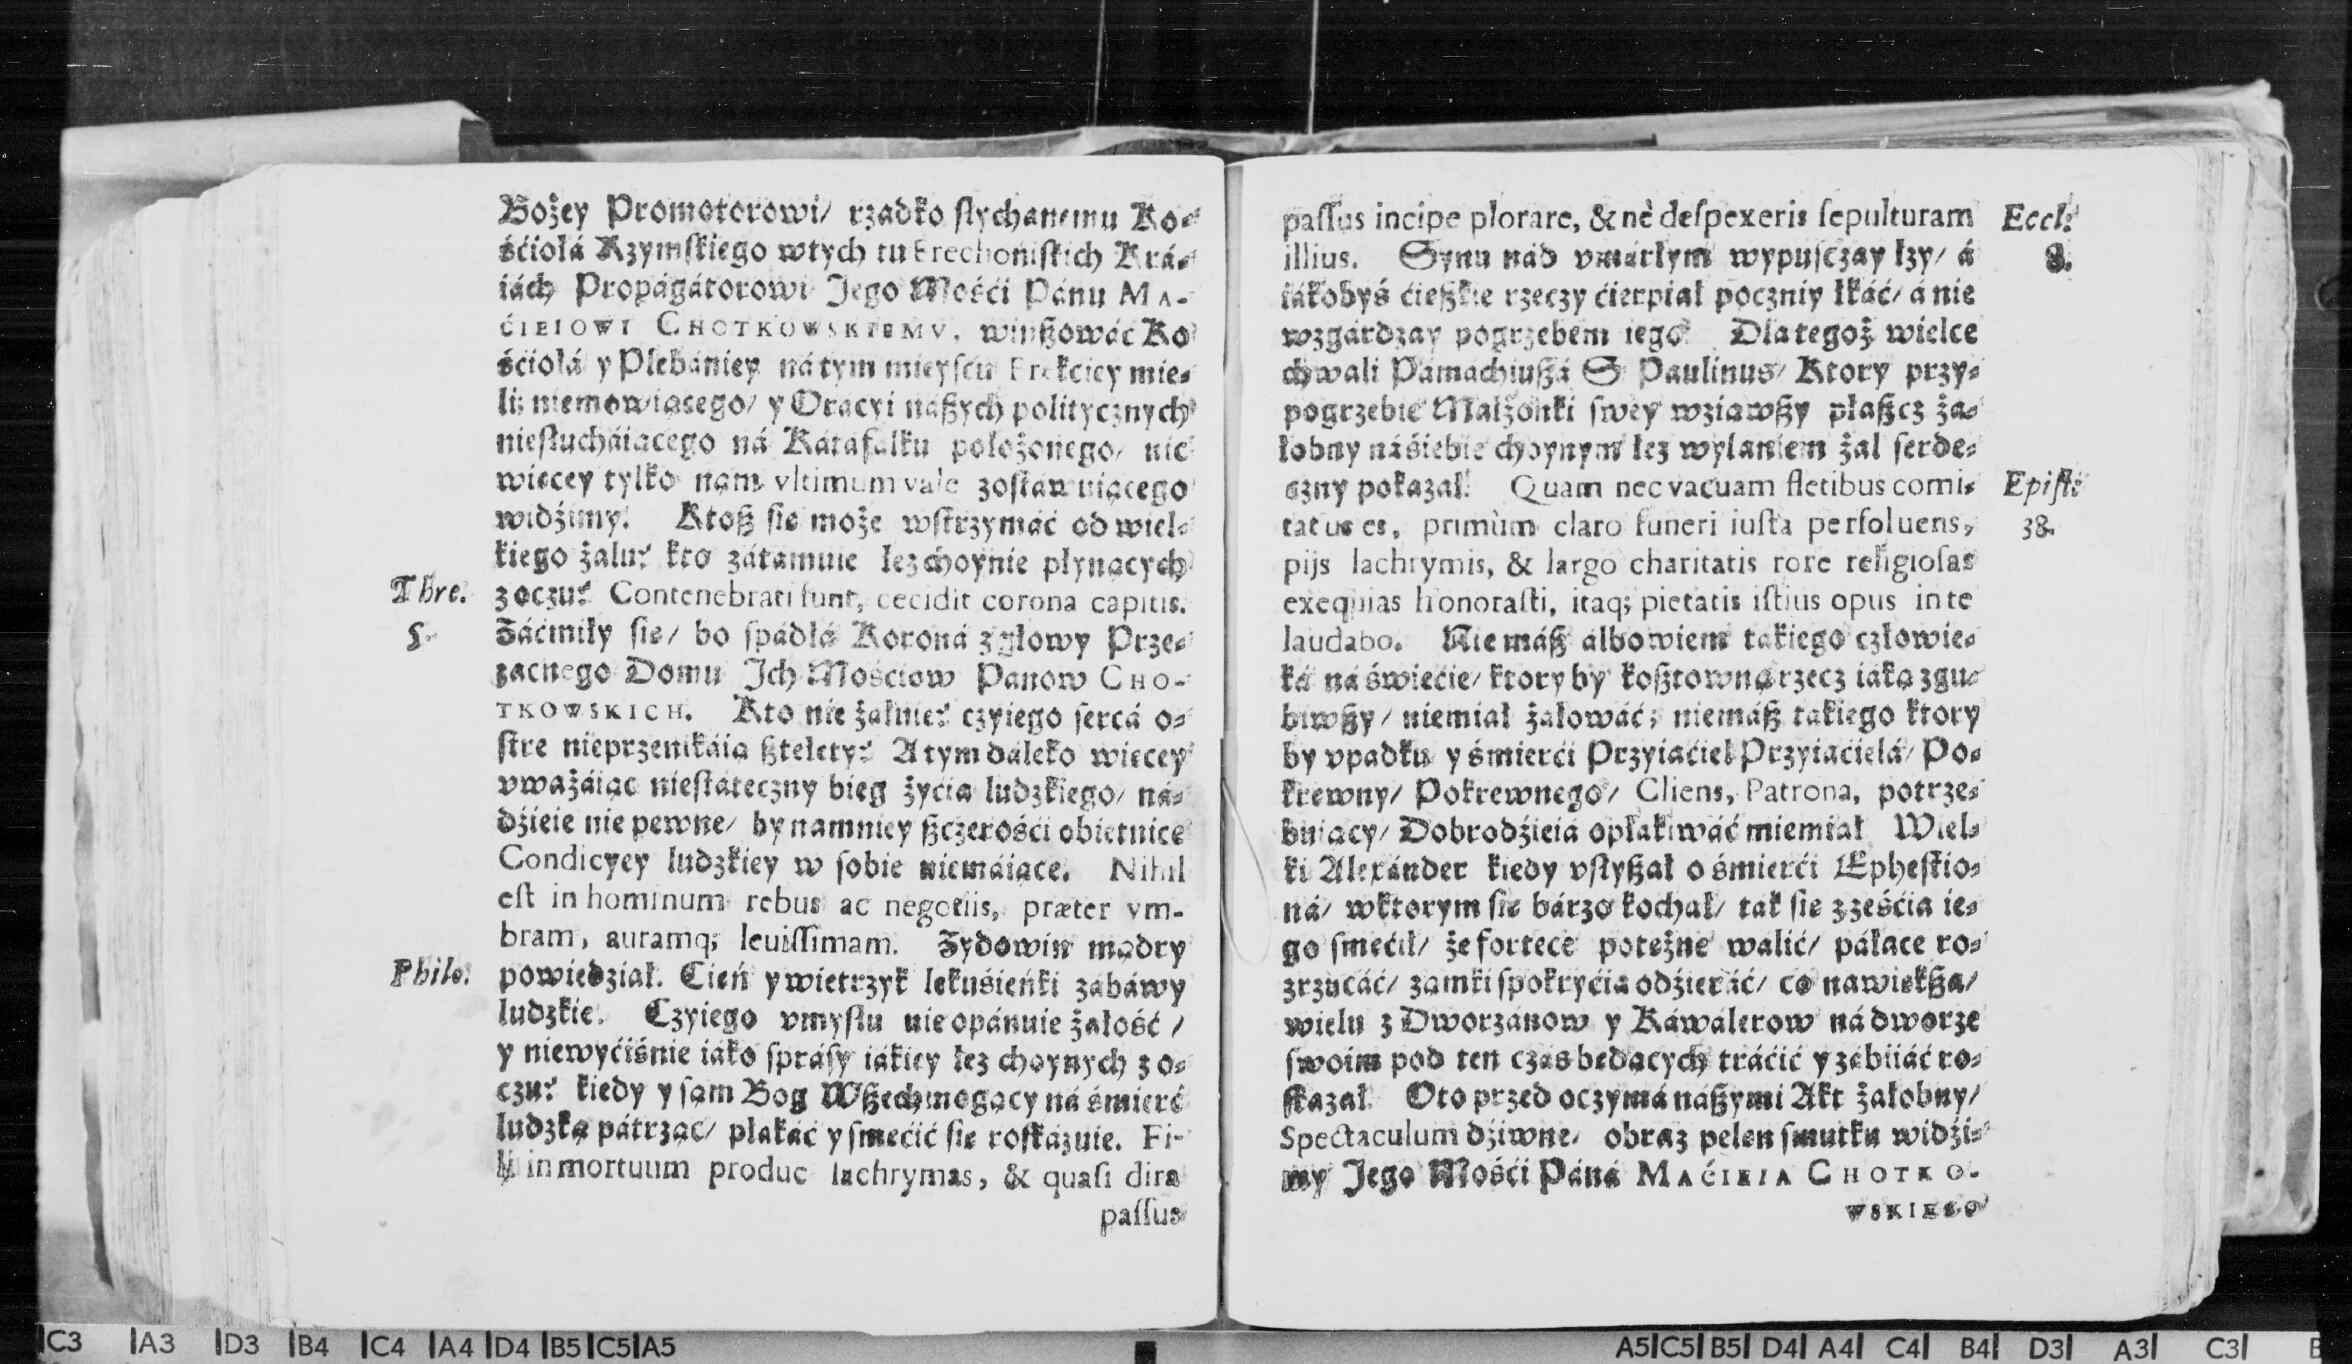 Bożey Promotorowi/ rzadko słychanemu Ko-
śćiołá Rzymskiego w tych tu Krechoniskich Krá-
iách Propágátorowi Jego Mośći Pánu MA-
ĆIEIOWI CHOTKOWSKIEMV, winßowáć Ko
śćiołá y Plebániey ná tym mieyscu Erekciey mie-
li; niemowiącego/ y Oracyi náßych politycznych
niesłucháiącego ná Káráfalku położonego/ nic
więcey tylko nam vltimum vale zostawuiącego
widźimy. Ktoß się może wstrzymáć od wiel-
kiego żalu? kto zátámuie łez choynie płynących
Thre. z oczu? Contenebrati sunt, cecidit corona capitis.
5. Záćmiły się/ bo spádłá Koroná z głowy Prze-
zacnego Domu Ich Mośćiow Pánow CHO-
TKOWSKICH. Kto nie żałuie? czyiego sercá o-
stre nieprzenikáią ßtelety? A tym dáleko więcey
vważáiąc niestáteczny bieg życia ludzkiego/ ná-
dźieie nie pewne/ by namniey ßczerośći obietnice
Condicyey ludzkiey w sobie niemáiące. Nihil
est in hominum rebus ac negotiis, præter vm-
bram, auramq; leuissimam. Zydowin mądry
Philo. powiedział. Cień y wietrzyk lekuśieńki zabáwy
ludzkie. Czyiego vmysłu nie opánuie żałość /
y niewyćiśnie iáko sprásy iákiey łez choynych z o-
czu? kiedy y sam Bog Wßechmogący ná śmierć
ludzką pátrząc/ płákáć y smęćić się roskázuie. Fi-
lj in mortuum produc lachrymas, & quasi dira
passus
passus incipe plorare, & nè despexeris sepulturam Eccl:
illius. Synu nád vmárłym wypusczay łzy/ á 8.
iákobyś ćięßkie rzeczy ćierpiał poczniy łkáć/ á nie
wzgárdzay pogrzebem iego. Dla tegoż wielce
chwali Pámachiußá S. Paulinus/ Ktory przy-
pogrzebie Małżonki swey wziąwßy płaßcz ża-
łobny ná śiebie choynym łez wylaniem żal serde-
czny pokazał. Quam nec vacuam fletibus comi- Epist:
tatus es, primùm claro funeri iusta persoluens, 38.
pijs lachrymis, & largo charitatis rore religiosas
exequias honorasti, itaq; pietatis istius opus in te
laudabo. Nie máß álbowiem tákiego człowie-
ká ná świećie/ ktory by koßtowną rzecz iáką zgu-
biwßy/ niemiał żáłowáć; niemáß tákiego ktory
by vpadku y śmierći Przyiaćiel Przyiaćielá/ Po-
krewny/ Pokrewnego/ Cliens, Patrona, potrze-
buiący/ Dobrodźieiá opłákiwáć niemiał. Wiel-
ki Alexánder kiedy vsłyßał o śmierći Ephestio-
ná/ w ktorym się bárzo kochał/ tak się z ześćia ie-
go smęćił/ że fortece potężne walić/ páłace ro-
zrzucáć/ zamki s pokryćia odźieráć/ co nawiękßa/
wielu z Dworzánow y Káwálerow ná dworze
swoim pod ten czás będących tráćić y zábiiáć ro-
skazał. Oto przed oczymá náßymi Akt żałobny/
Spectaculum dźiwne/ obraz pełen smutku widźi-
my Jego Mośći Páná MAĆIEIA CHOTKO-
WSKIEGO
C3 A3 D3 B4 C4 A4 D4 B5 C5 A5
A5 C5 B5 D4 A4 C4 B4 D3 A3 C3 B